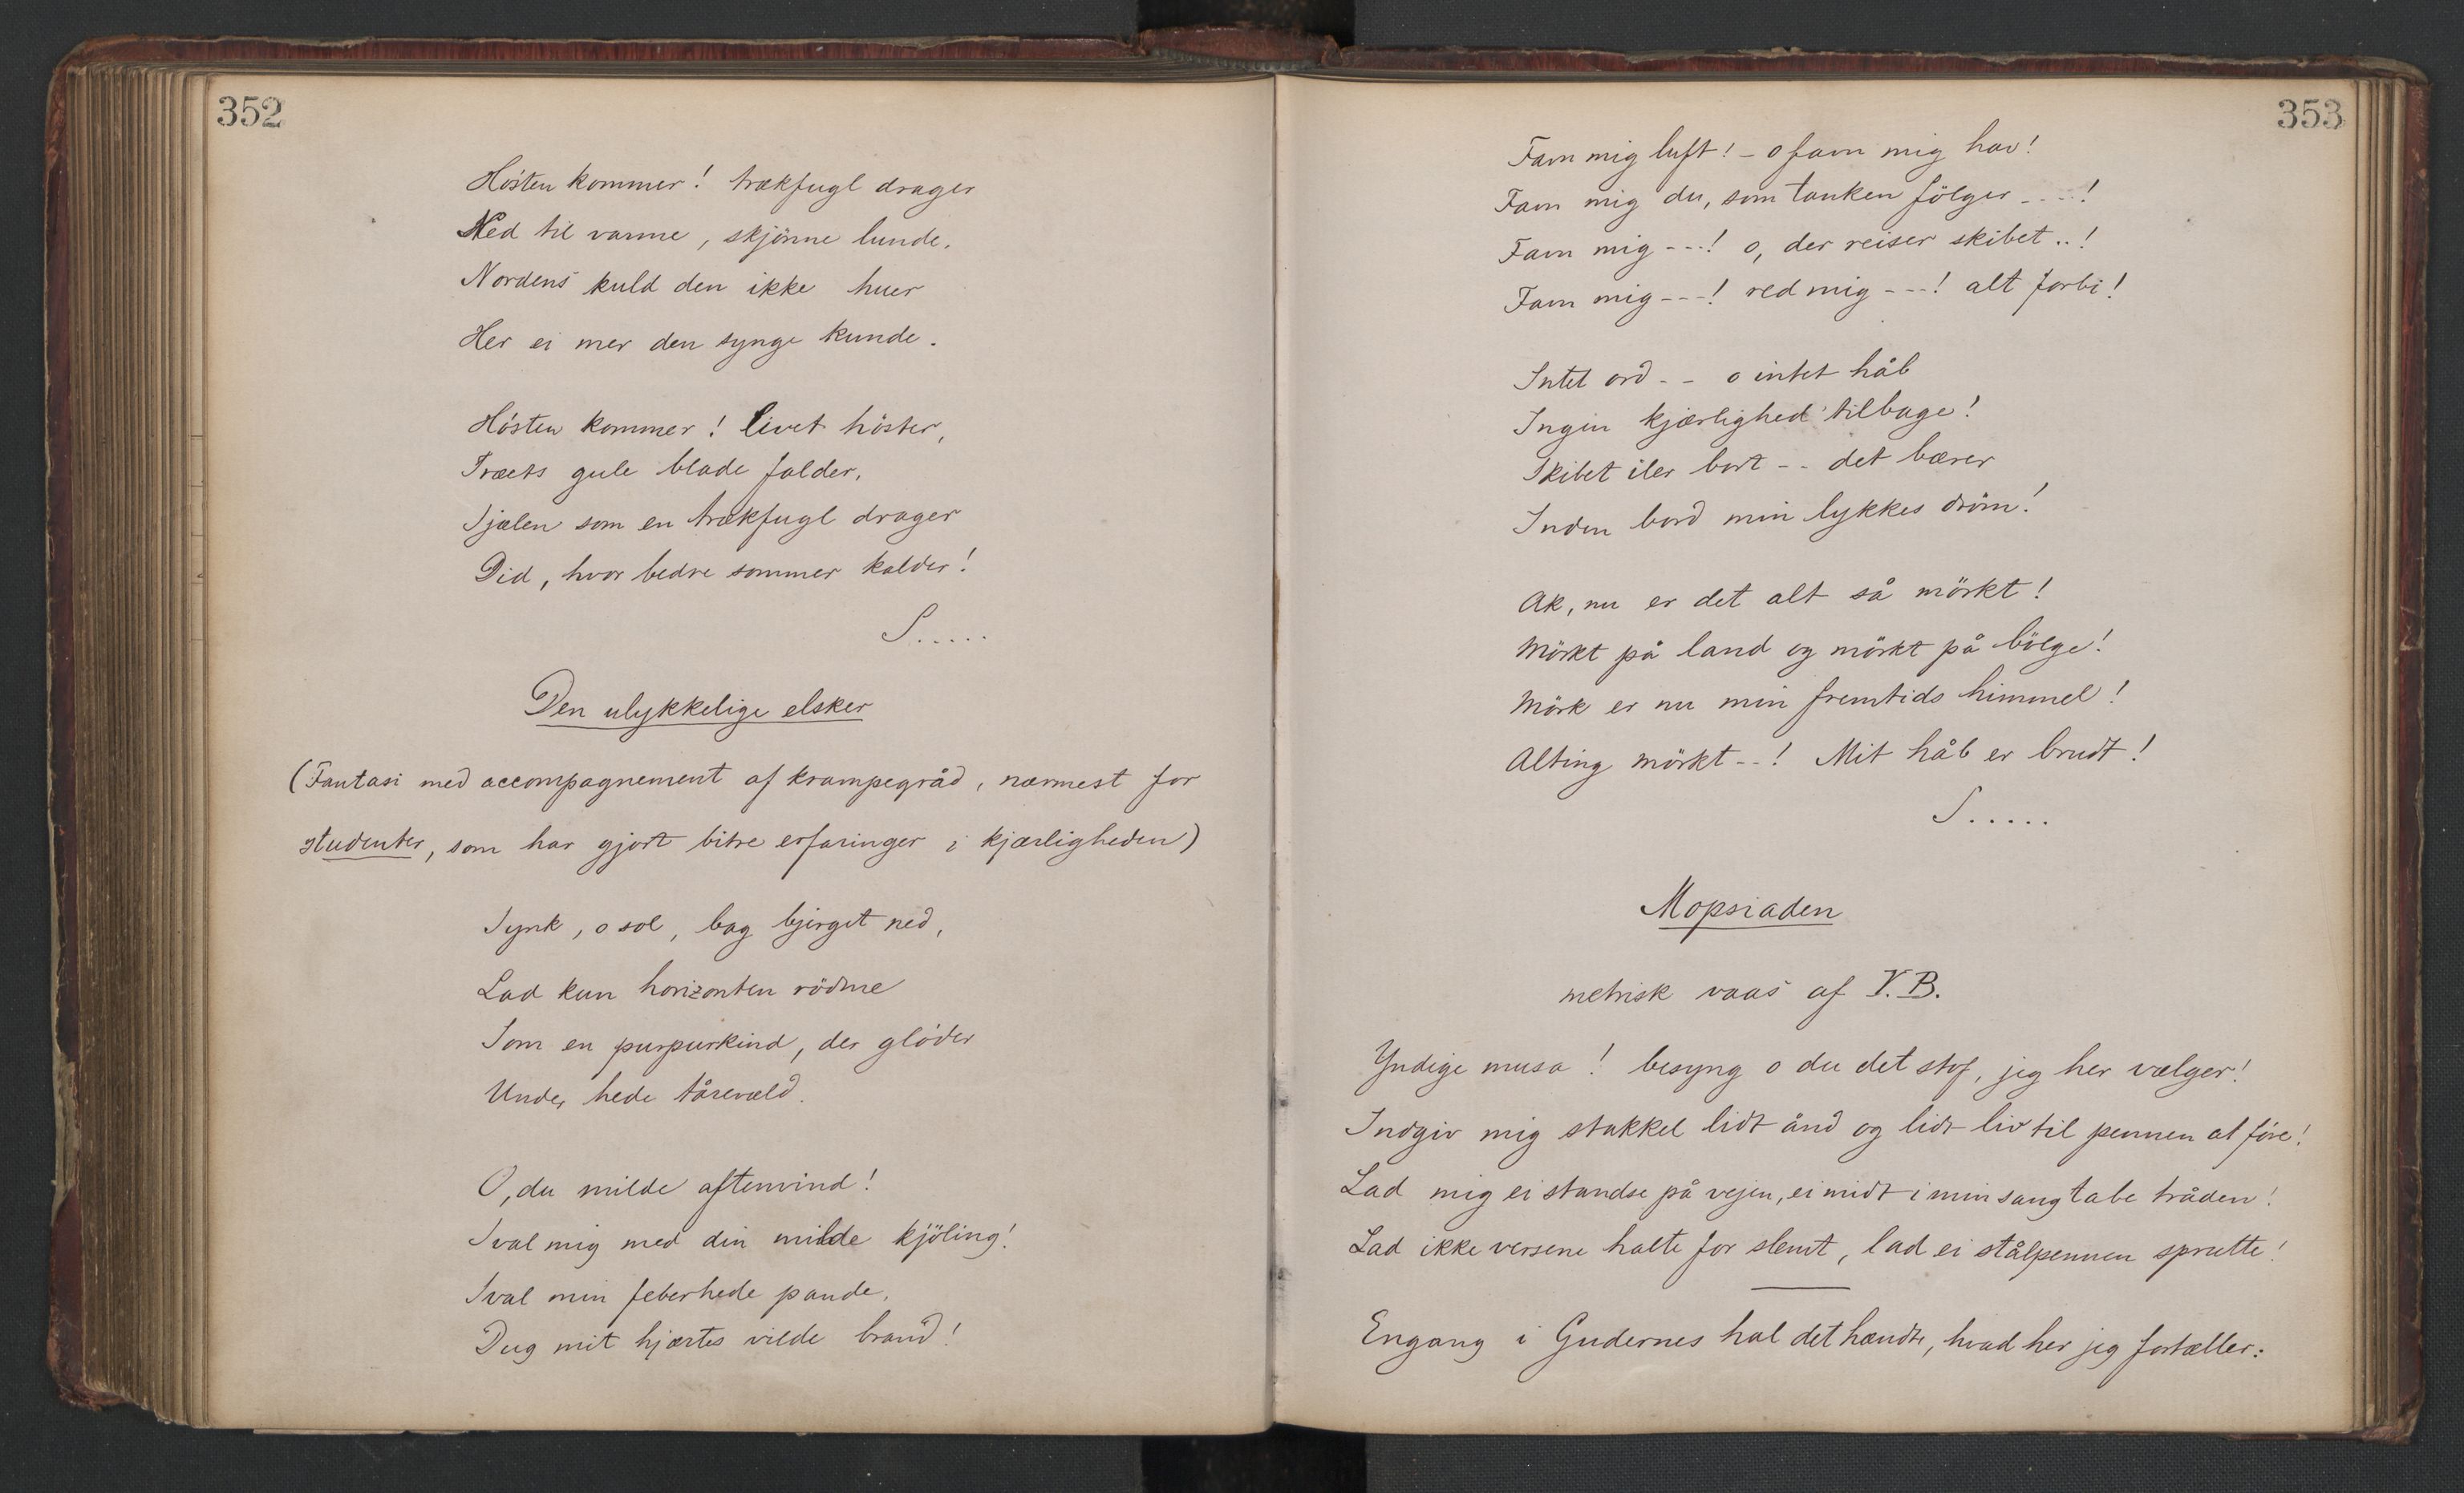 352
Hösten kommer! trækfugl drager
Ned til varme, skjönne lunde.
Nordens kuld den ikke huer
Her ei mer den synge kunde.
Hösten kommer! livet höster,
Træets gule blade falder.
Sjælen som en trækfugl drager
Did, hvor bedre sommer kalder!
S.....
Den ulykkelige elsker
(Fantasi med accompagnement af krampegråd, nærmest for
studenter, som har gjort bitre erfaringer i kjærligheden)
Synk, o sol, bag bjerget ned,
Lad kun horizonten rödme
Som en purpurkind, der glöder
Under hede tårevæld.
O, du milde aftenvind!
Sval mig med din milde kjöling!
Sval min feberhede pande.
Dug mit hjærtes vilde brand!
353
Favn mig luft! - o favn mig hav!
Favn mig du, som tanken fölger ----!
Favn mig ---! o, der reiser skibet ..!
Favn mig ---! red mig ---! alt forbi!
Intet ord -- o intet håb
Ingen kjærlighed tilbage!
Skibet iler bort -- det bærer
Inden bord min lykkes dröm!
Ak, nu er det alt så mörkt!
Mörkt på land og mörkt på bölge!
Mörk er nu min fremtids himmel!
Alting mörkt --! Mit håb er brudt!
S.....
Mopsiaden
metrisk vaas af V.B.
Yndige musa! besyng o du det stof, jeg her vælger!
Indgiv mig stakkel lidt ånd og lidt liv til pennen at före!
Lad mig ei standse på vejen, ei midt i min sang tabe tråden!
Lad ikke versene halte for slemt, lad ei stålpennen sprutte!
Engang i Gudernes hal det hændte, hvad her jeg fortæller: